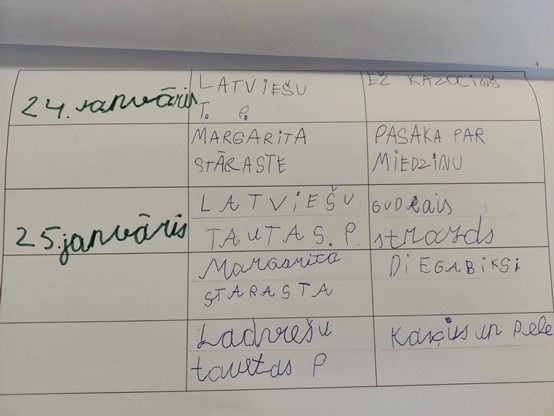 24. janvāris
LATVIEŠU
T. P.
EŽ KAŽOCIŅŠ
MARGARITA
STĀRASTE
PASAKA PAR
MIEDZIŅU
25. janvāris
LATVIEŠU
TAUTAS. P.
GUDRAIS
strazds
Margarita
STARASTA
DIEGABIKSI
Ladvrešu
tautas P
Kaķis un pele